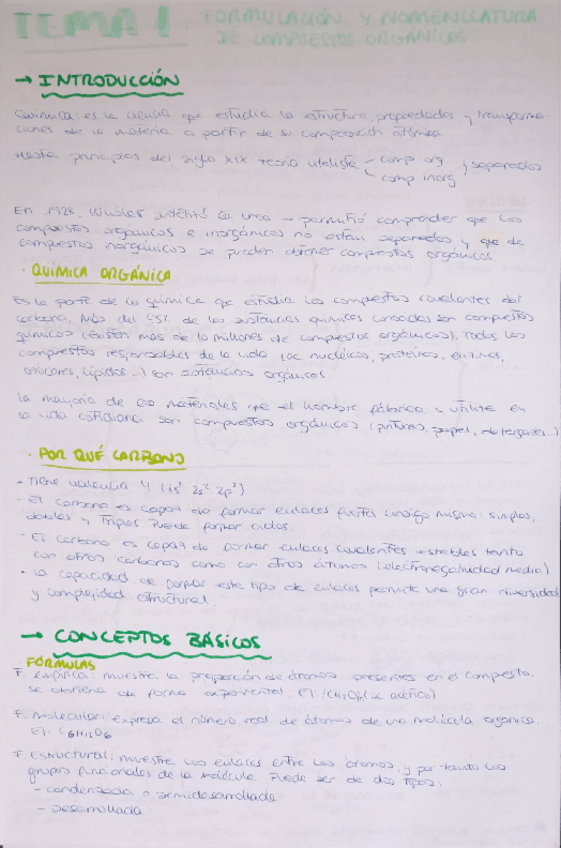 TEMA 1 FORMULACIÓN Y NOMENCLATURA
DE COMPUESTOS ORGÁNICOS
→ INTRODUCCIÓN
Química: es la ciencia que estudia la estructura, propiedades y transforma-
ciones de la materia a partir de su composición atómica
Hasta principios del siglo XIX: teoría vitalista - comp org } separados
- comp inorg
En 1928, Wholer sintetizó la urea → permitió comprender que los
compuestos orgánicos e inorgánicos no están separados, y que de
compuestos inorgánicos se pueden obtener compuestos orgánicos
· QUÍMICA ORGÁNICA
Es la parte de la química que estudia los compuestos covalentes del
carbono. Más del 95% de las sustancias químicas conocidas son compuestos
químicos (existen más de 10 millones de compuestos orgánicos). Todos los
compuestos responsables de la vida (ác nucleicos, proteínas, enzimas,
azúcares, lípidos...) son sustancias orgánicas.
La mayoría de los materiales que el hombre fabrica y utiliza en
la vida cotidiana son compuestos orgánicos (pinturas, papel, detergentes...)
· POR QUÉ CARBONO
- Tiene valencia 4 (1s² 2s² 2p²)
- El carbono es capaz de formar enlaces fuertes consigo mismo: simples,
dobles y triples. Puede formar ciclos.
- El carbono es capaz de formar enlaces covalentes estables tanto
con otros carbonos como con otros átomos (electronegatividad media)
- La capacidad de formar este tipo de enlaces permite una gran diversidad
y complejidad estructural
→ CONCEPTOS BÁSICOS
FÓRMULAS
F. empírica: muestra la proporción de átomos presentes en el compuesto.
se obtiene de forma experimental. Ej: (CH₂O)n (ác acético)
F. molecular: expresa el número real de átomos de una molécula orgánica.
Ej: C₆H₁₂O₆
F. Estructural: muestra los enlaces entre los átomos, y por tanto los
grupos funcionales de la molécula. Puede ser de dos tipos:
- condensada o semidesarrollada
- desarrollada